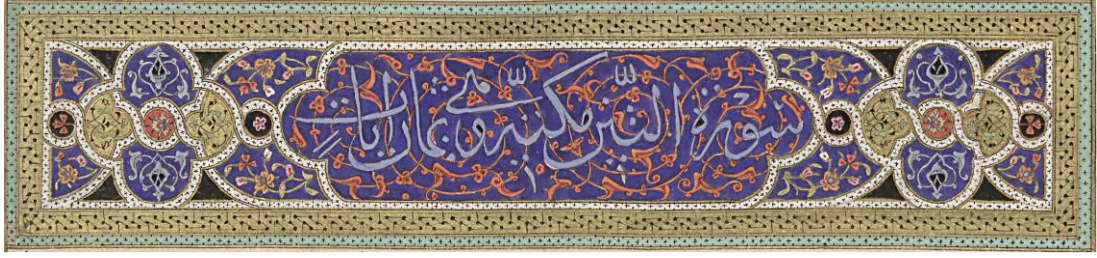 سورة التين مكية وهي ثمان ايات